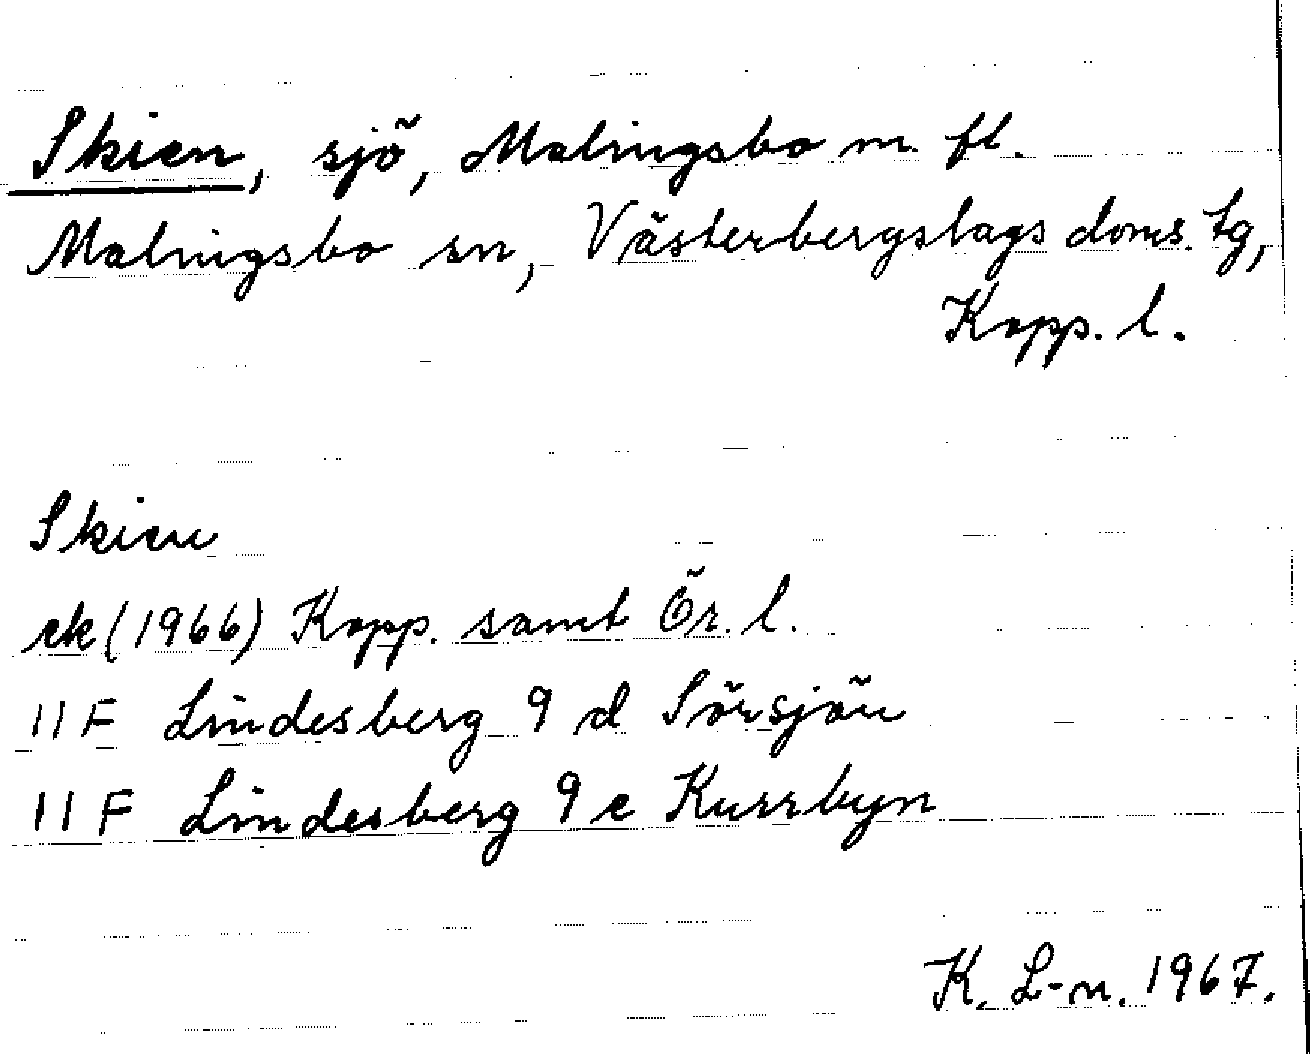 Skien, sjö, Malingsbo m. fl.
Malingsbo sn, Västerbergslags doms. tg,
Kopp. l.
Skien
ek (1966) Kopp. samt Ör. l.
11 F Lindesberg 9 d Sörsjön
11 F Lindesberg 9 e Kurrbyn
K. L-n. 1967.